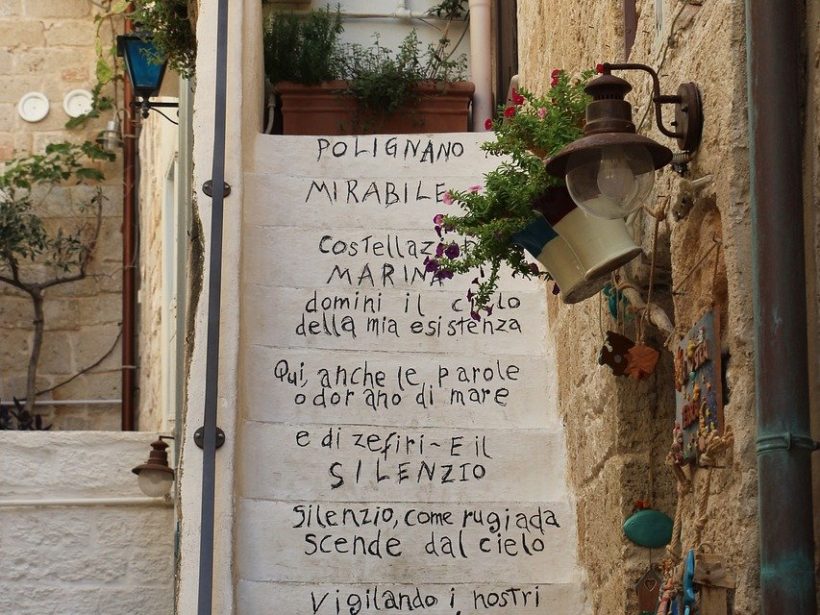 POLIGNANO
MIRABILE
COSTELLAZ
MARINA
domini il cielo
della mia esistenza
Qui, anche le parole
odorano di mare
e di zefiri - E il
SILENZIO
Silenzio, come rugiada
scende dal cielo
Vigilando i nostri